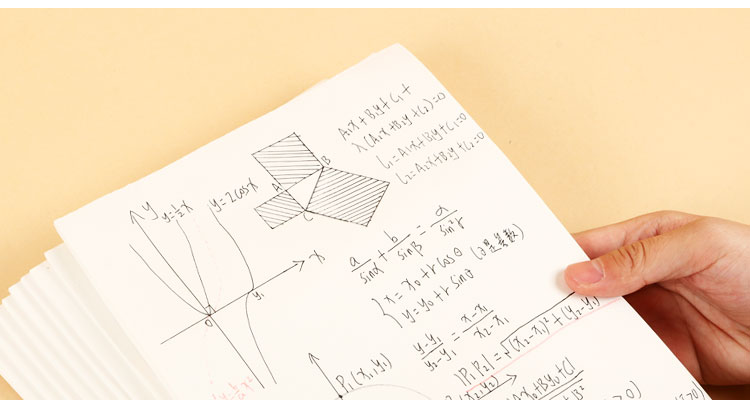 A₁x+B₁y+C₁+
λ(A₂x+B₂y+C₂)=0
L₁=A₁x+B₁y+C₁=0
L₂=A₂x+B₂y+C₂=0
A
B
C
y
y=½x
y=2cosx
x
O
y₁
a/sinα + b/sinβ = a/sin²r
{x=x₀+rcosθ (θ是参数)
y=y₀+rsinθ
(y-y₁)/(y₂-y₁) = (x-x₁)/(x₂-x₁)
|P₁P₂|=√(x₂-x₁)²+(y₂-y₁)
P₁(x₁,y₁)
(x₂,y₂)
x₀+By₀+C|
>0)